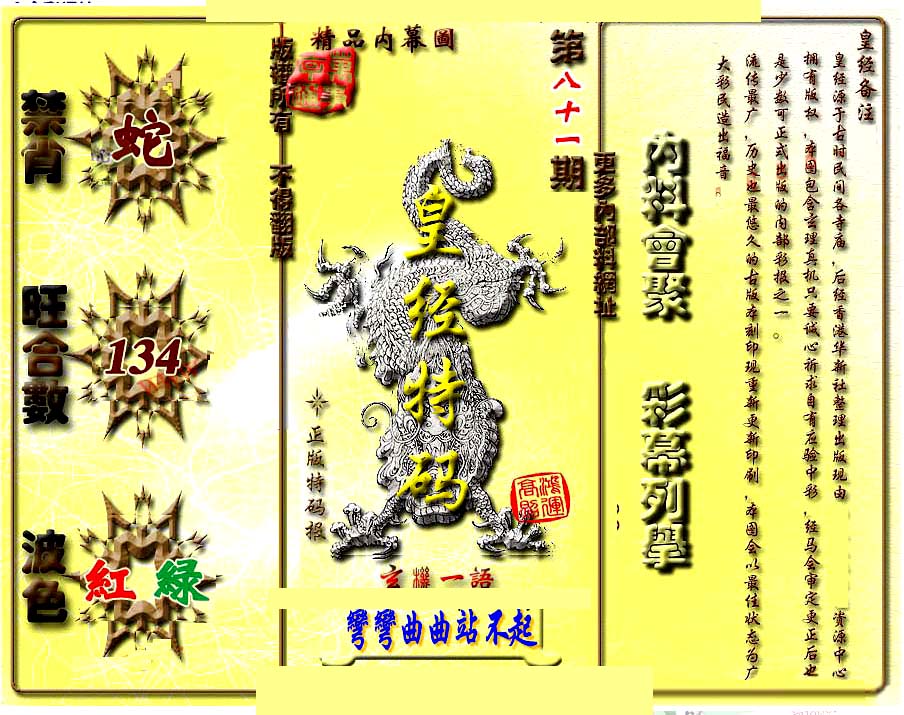 皇经备注
皇经源于古时民间各寺庙,后经香港华新社整理出版现由 资源中心
拥有版权,本图包含玄理真机只要诚心祈求自有应验中彩,经马会审定更正后也
是少数可正式出版的内部彩报之一。
流传最广,历史也最悠久的古版本刻印现重新更新印刷,本图会以最佳状态为广
大彩民造出福音
內料會聚
彩幕列舉
更多內部料網址
第八十一期
精品内幕圖
版權所有 不得翻版
皇经特码
正版特码报
鴻運
高照
玄機一語
彎彎曲曲站不起
禁肖
蛇
旺合數
134
波色
紅 綠